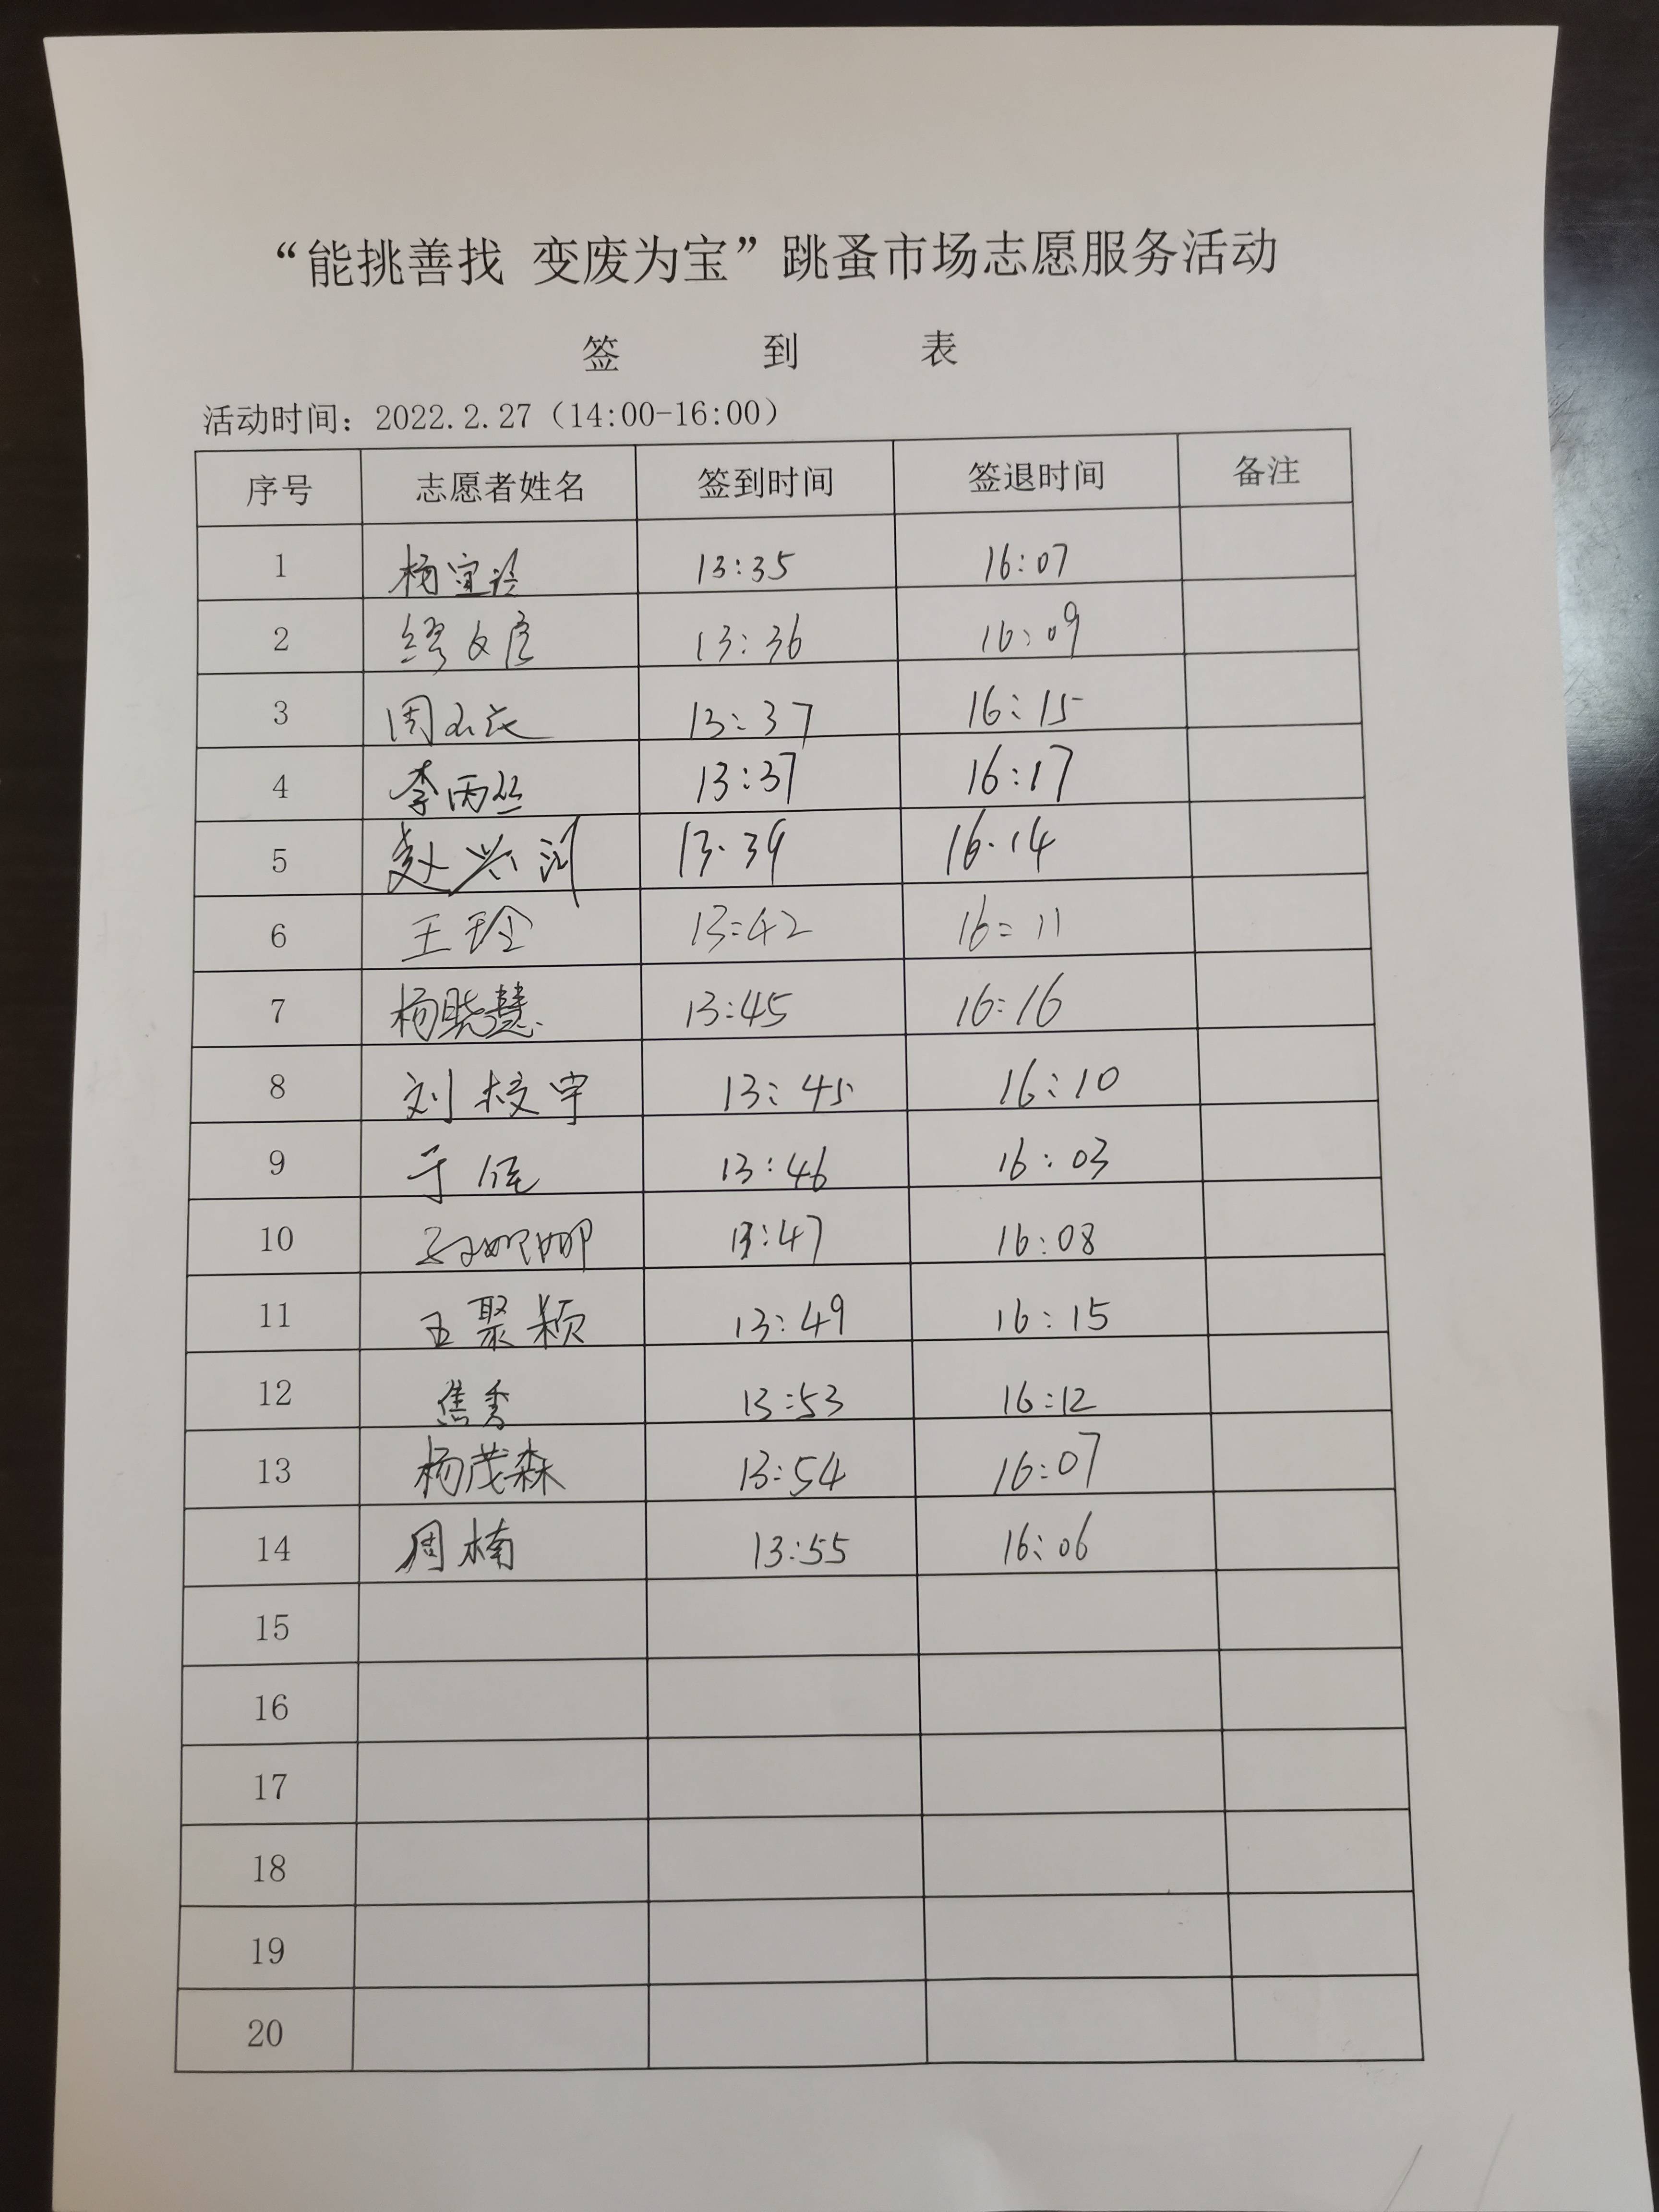 “能挑善找 变废为宝”跳蚤市场志愿服务活动
签 到 表
活动时间：2022.2.27（14:00-16:00）
序号 志愿者姓名 签到时间 签退时间 备注
1 杨宜 13:35 16:07
2 缪文彦 13:36 16:09
3 周 13:37 16:15
4 李丙丝 13:37 16:17
5 赵兴河 13.39 16.14
6 王玲 13:42 16:11
7 杨晓慧 13:45 16:16
8 刘校宇 13:45 16:10
9 于 13:46 16:03
10 孙娜娜 13:47 16:08
11 王聚颖 13:49 16:15
12 焦秀 13:53 16:12
13 杨茂森 13:54 16:07
14 周楠 13:55 16:06
15
16
17
18
19
20